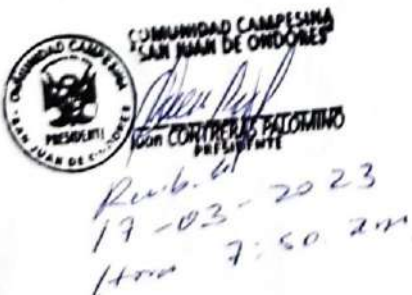 COMUNIDAD CAMPESINA
"SAN JUAN DE ONDORES"
COMUNIDAD CAMPESINA
PRESIDENTE
SAN JUAN DE ONDORES
CONTRERAS PALOMINO
PRESIDENTE
17-03-2023
Hora 7:50 am